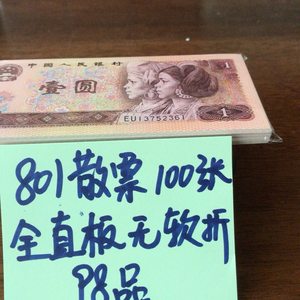 中国人民银行
壹圆
1
EU13752361
801散票100张
全直板无软折
P8品